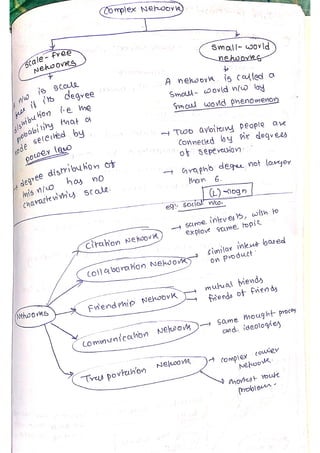 Complex Network
Scale-free
Networks
n/w is scale
if its degree
distribution i.e the
probability that a
node selected by
power law
degree distribution of
this n/w has no
characteristic scale.
Small-world
networks
A network is called a
small-world n/w by
small world phenomenon
→ Two arbitrary people are
connected by six degrees
of seperation.
→ Graph's degree not larger
than 6.
(L) ~ logn
eg:- social n/w.
Networks
Citation Network
→ same interests, wish to
explore same topic
Collaboration Network
→ similar intent based
on product
Friendship Network
→ mutual friends
→ friends of friends
Communication Network
→ same thought process
and ideologies
Trasportation Network
→ complex courier
Network.
→ shortest route
problem.